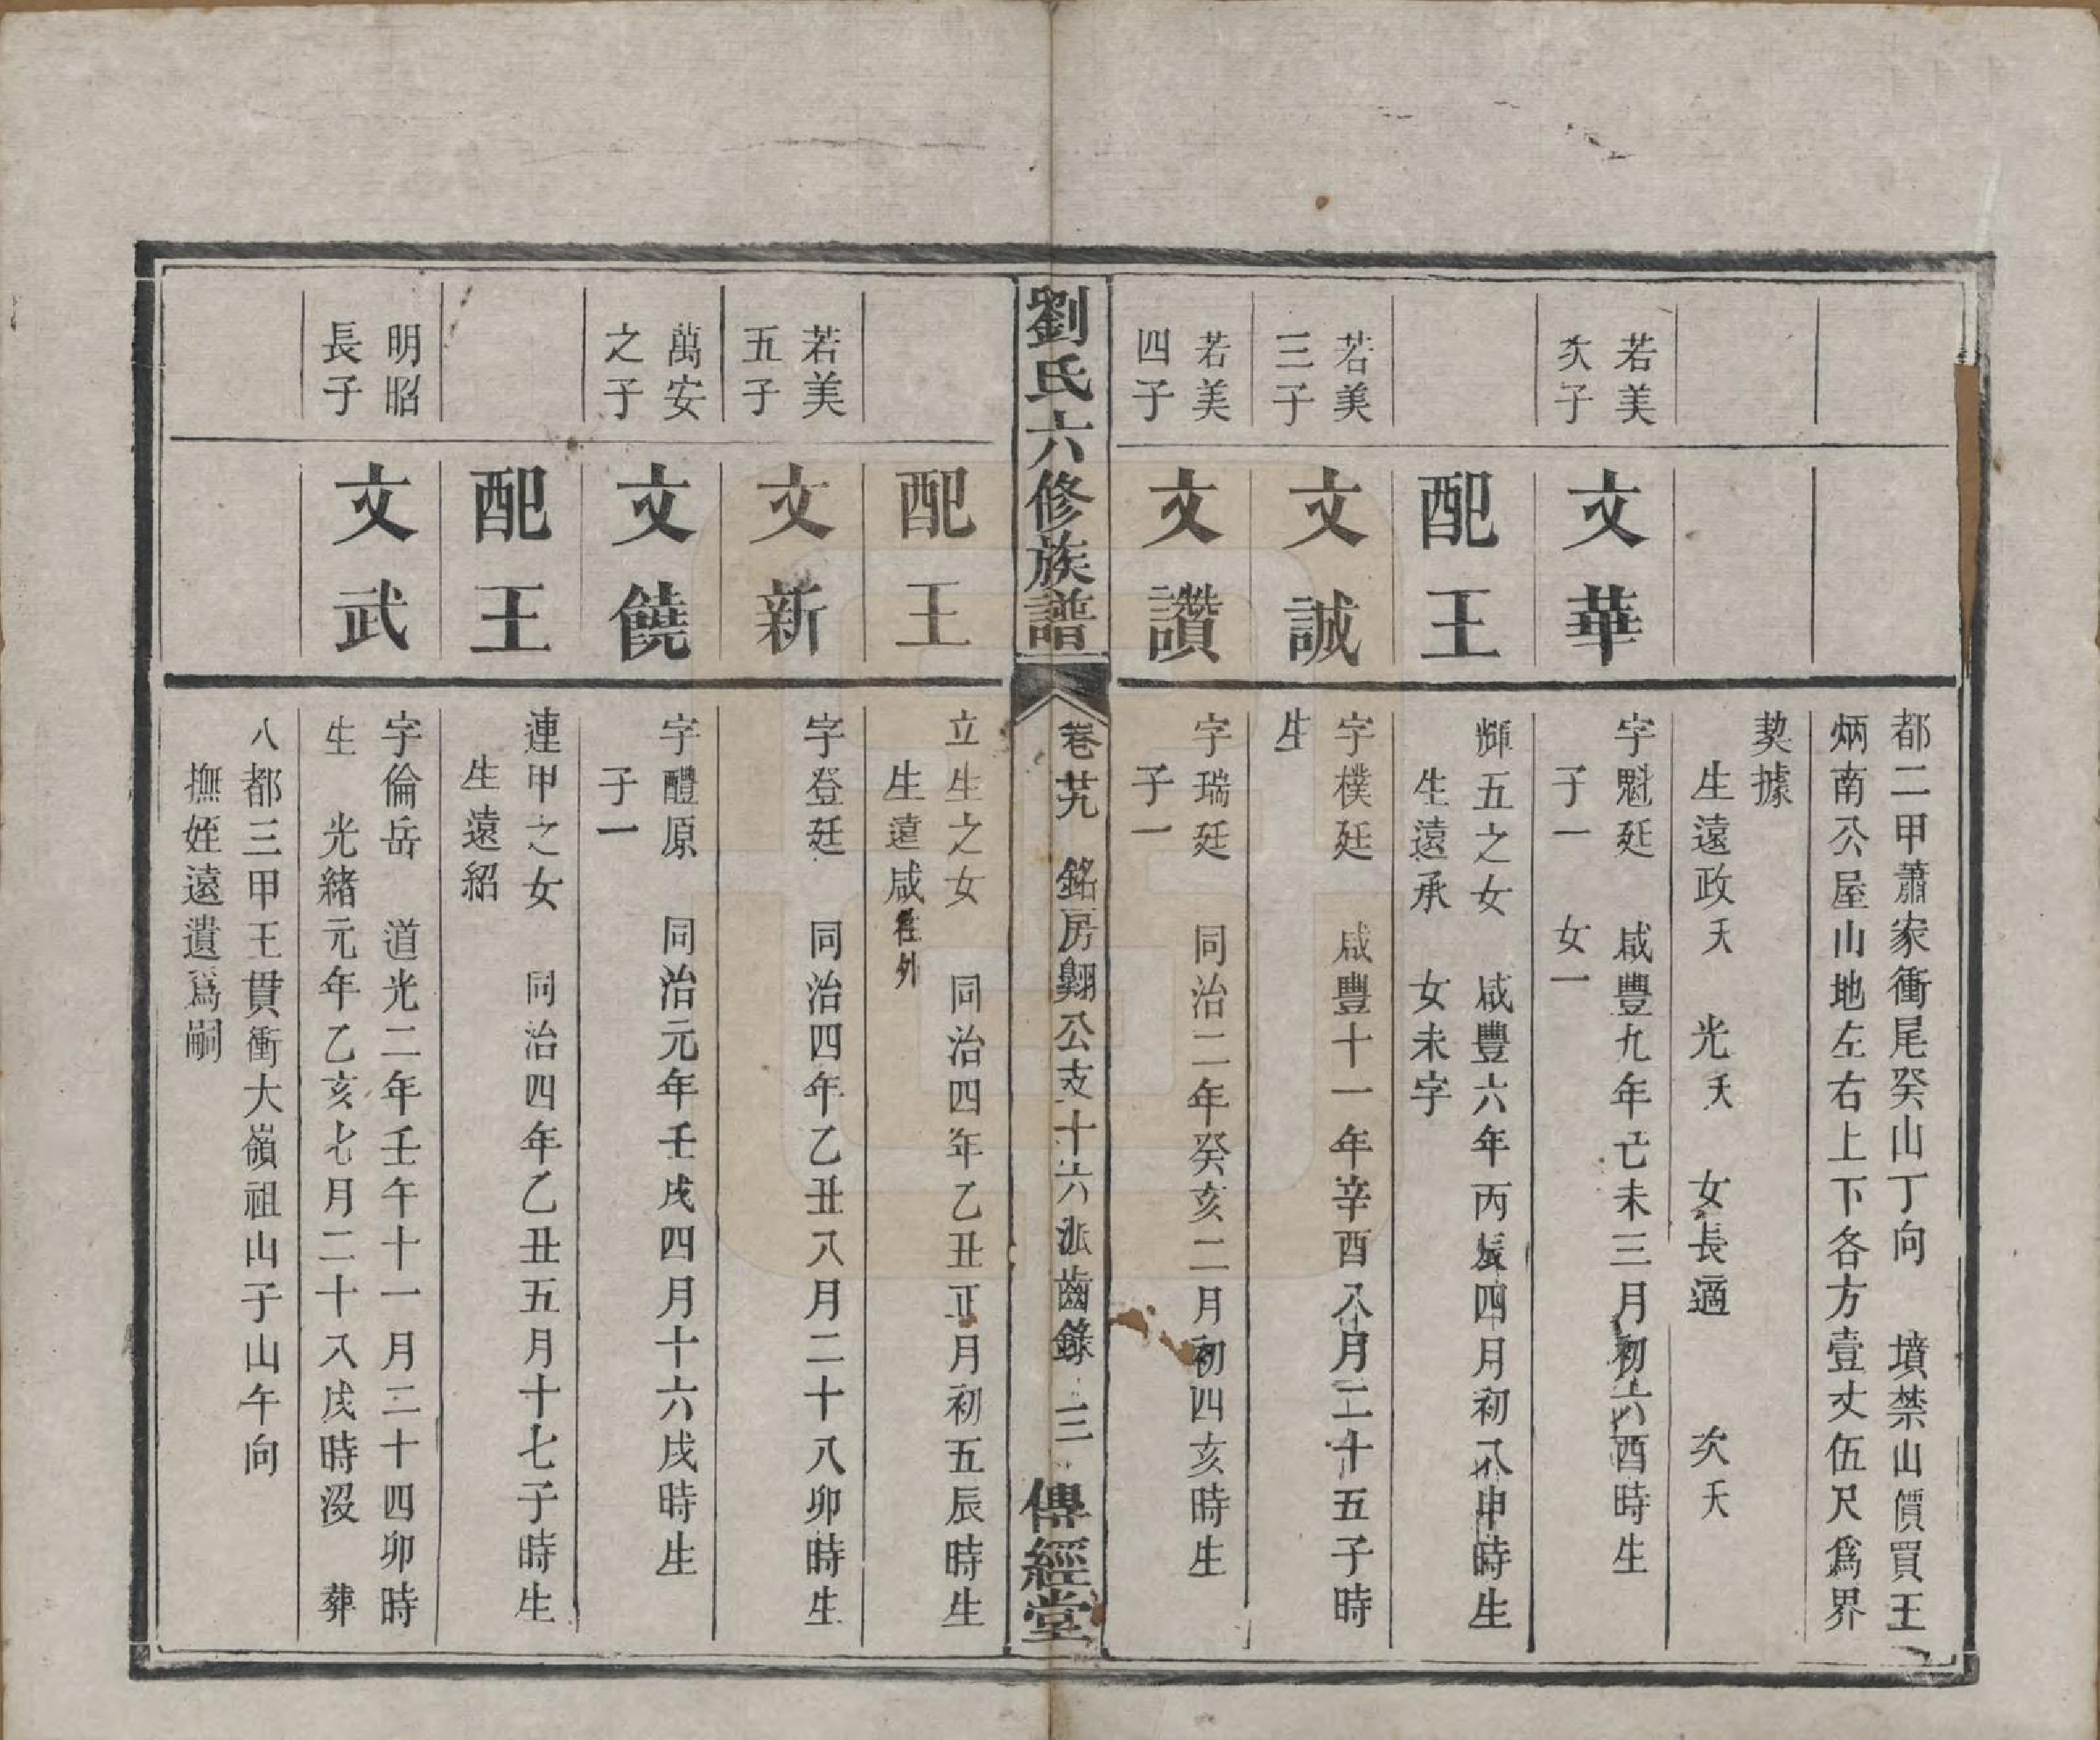 都二甲蕭家衝尾癸山丁向　墳禁山價買王
炳南公屋山地左右上下各方壹丈伍尺爲界
契據
生遠政夭　光夭　女長適　次夭
若美
次子
文華
字魁廷　咸豐九年己未三月初六酉時生
子一　女一
配王
輝五之女　咸豐六年丙辰四月初八申時生
生遠承　女未字
若美
三子
文誠
字樸廷　咸豐十一年辛酉八月二十五子時
生
若美
四子
文讚
字瑞廷　同治二年癸亥二月初四亥時生
子一
劉氏六修族譜
卷廿九　銘房翺公支十六派齒錄　三
傳經堂
配王
立生之女　同治四年乙丑正月初五辰時生
生遠咸在外
若美
五子
文新
字登廷　同治四年乙丑八月二十八卯時生
萬安
之子
文饒
字醴原　同治元年壬戌四月十六戌時生
子一
配王
連甲之女　同治四年乙丑五月十七子時生
生遠紹
明昭
長子
文武
字倫岳　道光二年壬午十一月二十四卯時
生　光緒元年乙亥七月二十八戌時沒　葬
八都三甲王貫衝大嶺祖山子山午向
撫姪遠遺爲嗣